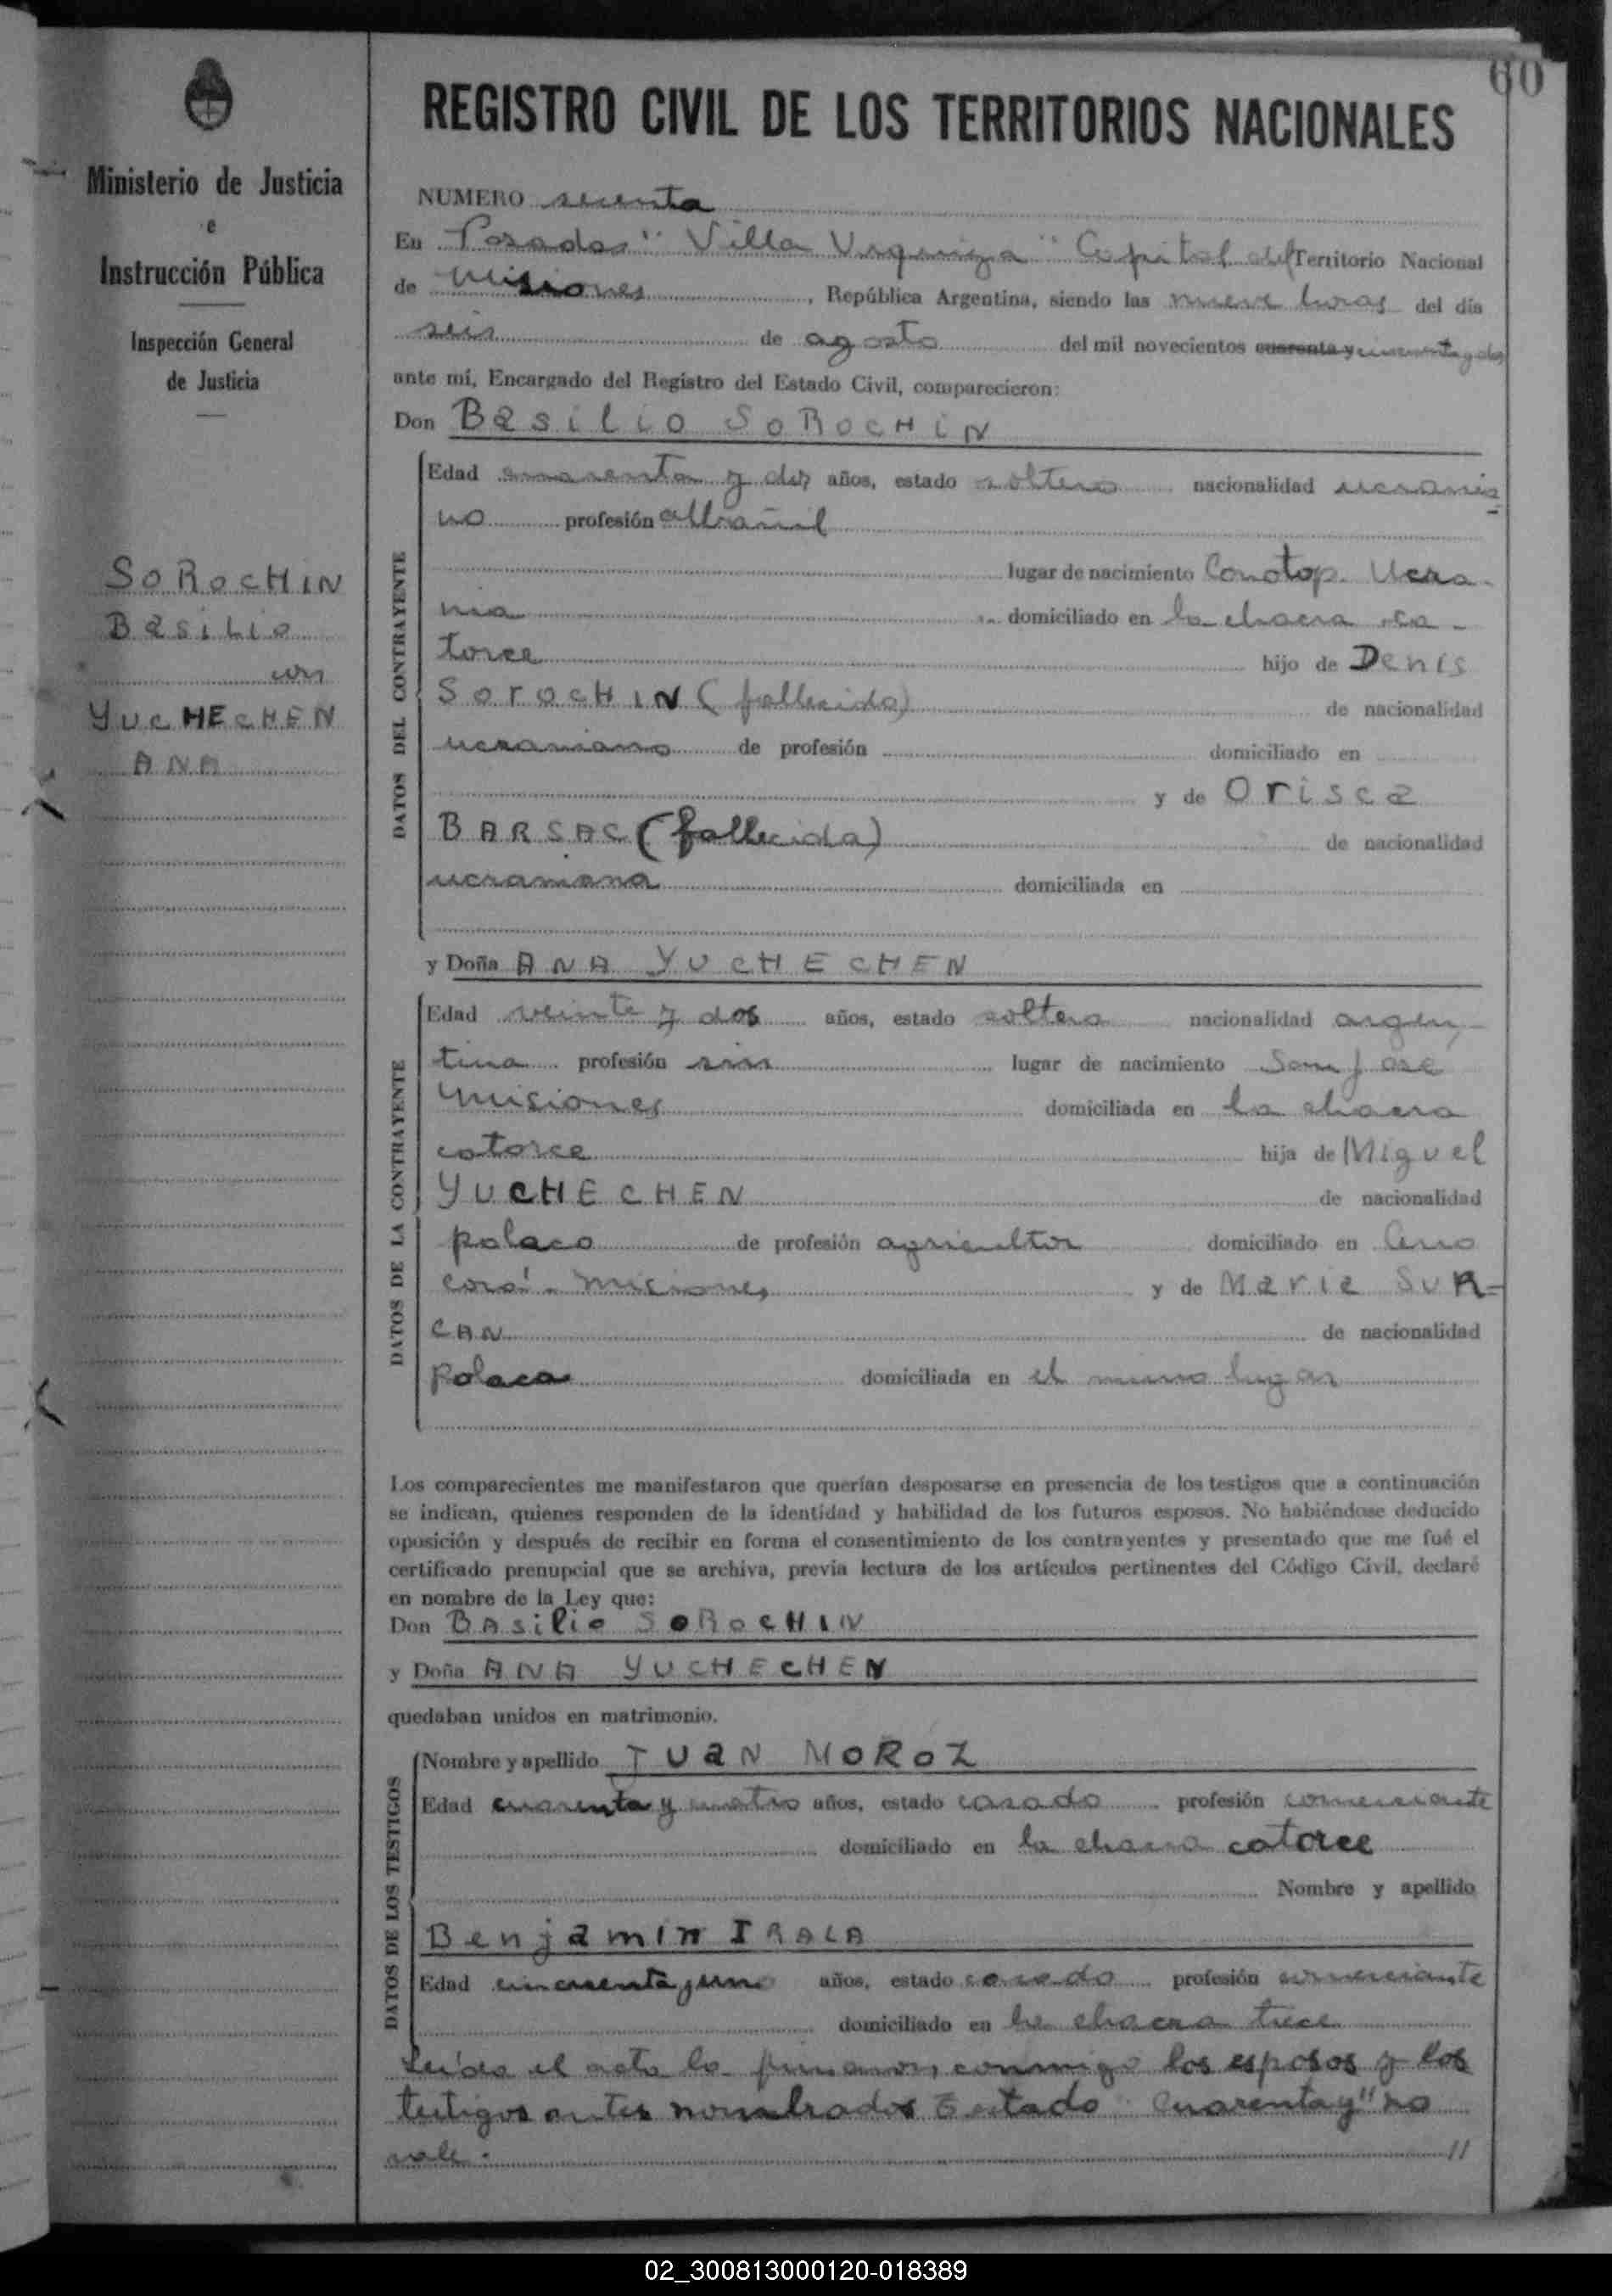 60
Ministerio de Justicia
e
Instrucción Pública
Inspección General
de Justicia
SOROCHIN
Basilio
con
YUCHECHEN
ANA
REGISTRO CIVIL DE LOS TERRITORIOS NACIONALES
NUMERO sesenta
En Posadas "Villa Urquiza" Capital del Territorio Nacional
de Misiones, República Argentina, siendo las nueve horas del día
seis de agosto del mil novecientos cuarenta y cincuenta y dos
ante mí, Encargado del Registro del Estado Civil, comparecieron:
Don Basilio SOROCHIN
DATOS DEL CONTRAYENTE
Edad cuarenta y dos años, estado soltero nacionalidad ucrania
no profesión albañil
lugar de nacimiento Conotop. Ucra-
nia domiciliado en la chacra ca-
torce hijo de Denis
SOROCHIN (fallecido) de nacionalidad
ucraniano de profesión domiciliado en
y de Orisca
BARSAC (fallecida) de nacionalidad
ucraniana domiciliada en
y Doña ANA YUCHECHEN
DATOS DE LA CONTRAYENTE
Edad veinte y dos años, estado soltera nacionalidad argen-
tina profesión sin lugar de nacimiento San José
Misiones domiciliada en la chacra
catorce hija de Miguel
YUCHECHEN de nacionalidad
polaco de profesión agricultor domiciliado en Cerro
corá - Misiones y de Maria SUR-
CAN de nacionalidad
polaca domiciliada en el mismo lugar
Los comparecientes me manifestaron que querían desposarse en presencia de los testigos que a continuación
se indican, quienes responden de la identidad y habilidad de los futuros esposos. No habiéndose deducido
oposición y después de recibir en forma el consentimiento de los contrayentes y presentado que me fué el
certificado prenupcial que se archiva, previa lectura de los artículos pertinentes del Código Civil, declaré
en nombre de la Ley que:
Don BAsilio SOROCHIN
y Doña ANA YUCHECHEN
quedaban unidos en matrimonio.
DATOS DE LOS TESTIGOS
Nombre y apellido JUAN MOROZ
Edad cuarenta y cuatro años, estado casado profesión comerciante
domiciliado en la chacra catorce
Nombre y apellido
Benjamin IRALA
Edad cincuenta y uno años, estado casado profesión comerciante
domiciliado en la chacra trece
Leída el acta la firmaron, conmigo los esposos y los
testigos antes nombrados Testado "cuarenta y" no
vale. "
02_300813000120-018389